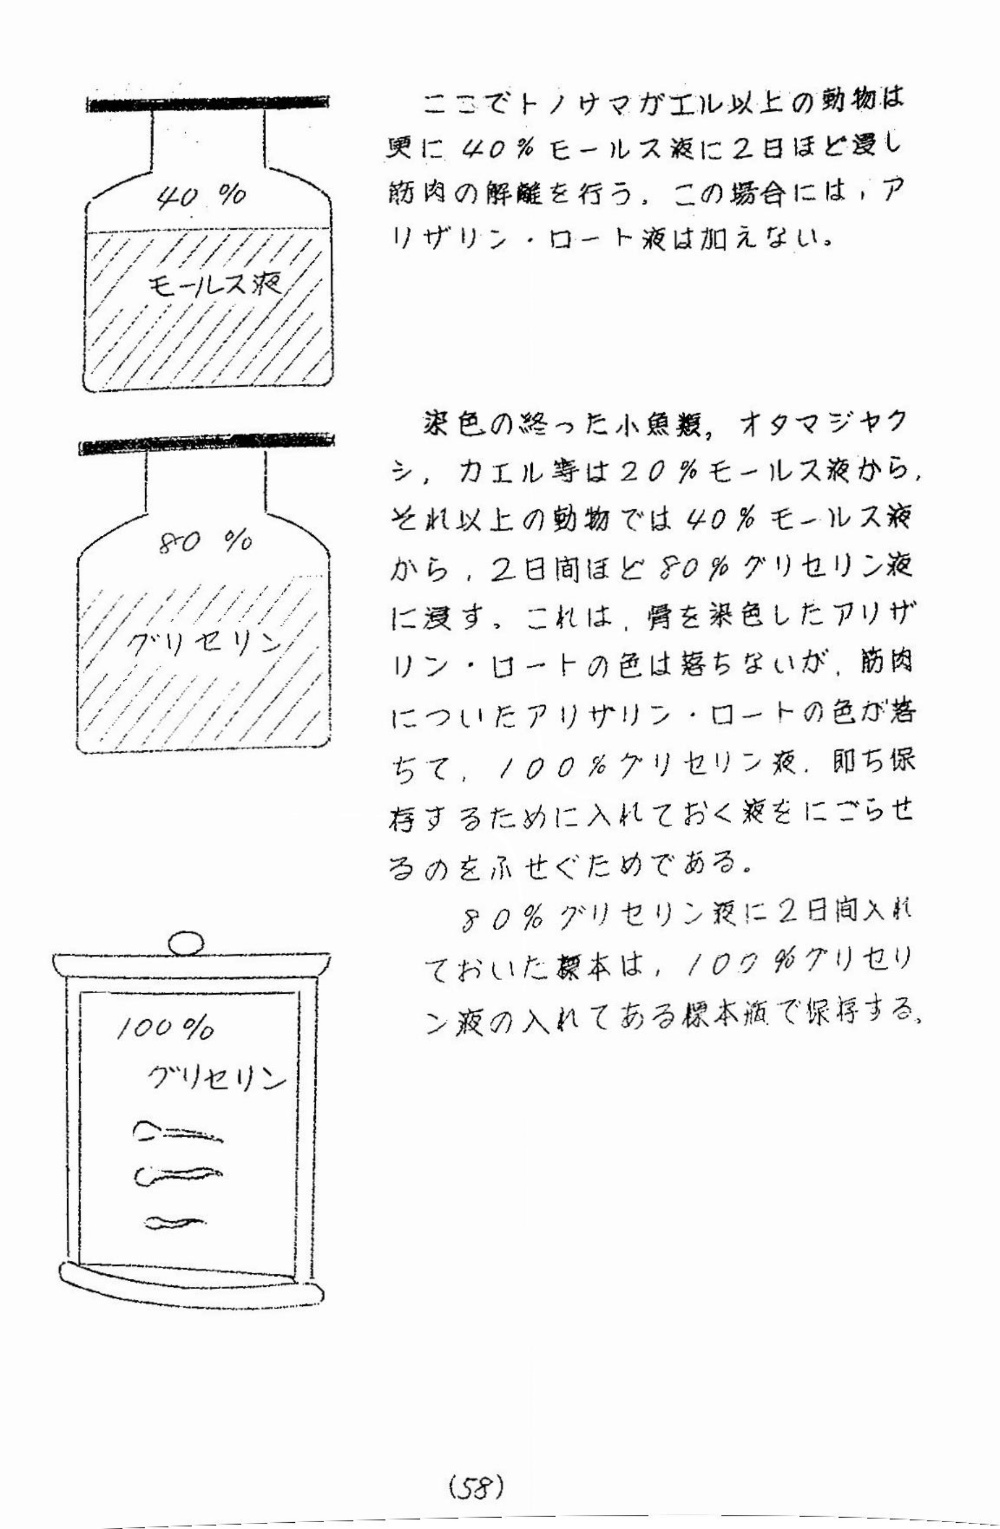 40 %
モールス液
ここでトノサマガエル以上の動物は
更に40%モールス液に2日ほど浸し
筋肉の解離を行う。この場合には,ア
リザリン・ロート液は加えない。
80 %
グリセリン
染色の終った小魚類,オタマジャク
シ,カエル等は20%モールス液から,
それ以上の動物では40%モールス液
から,2日間ほど80%グリセリン液
に浸す。これは,骨を染色したアリザ
リン・ロートの色は落ちないが,筋肉
についたアリザリン・ロートの色が落
ちて,100%グリセリン液,即ち保
存するために入れておく液をにごらせ
るのをふせぐためである。
80%グリセリン液に2日間入れ
ておいた標本は,100%グリセリ
ン液の入れてある標本瓶で保存する。
100%
グリセリン
(58)